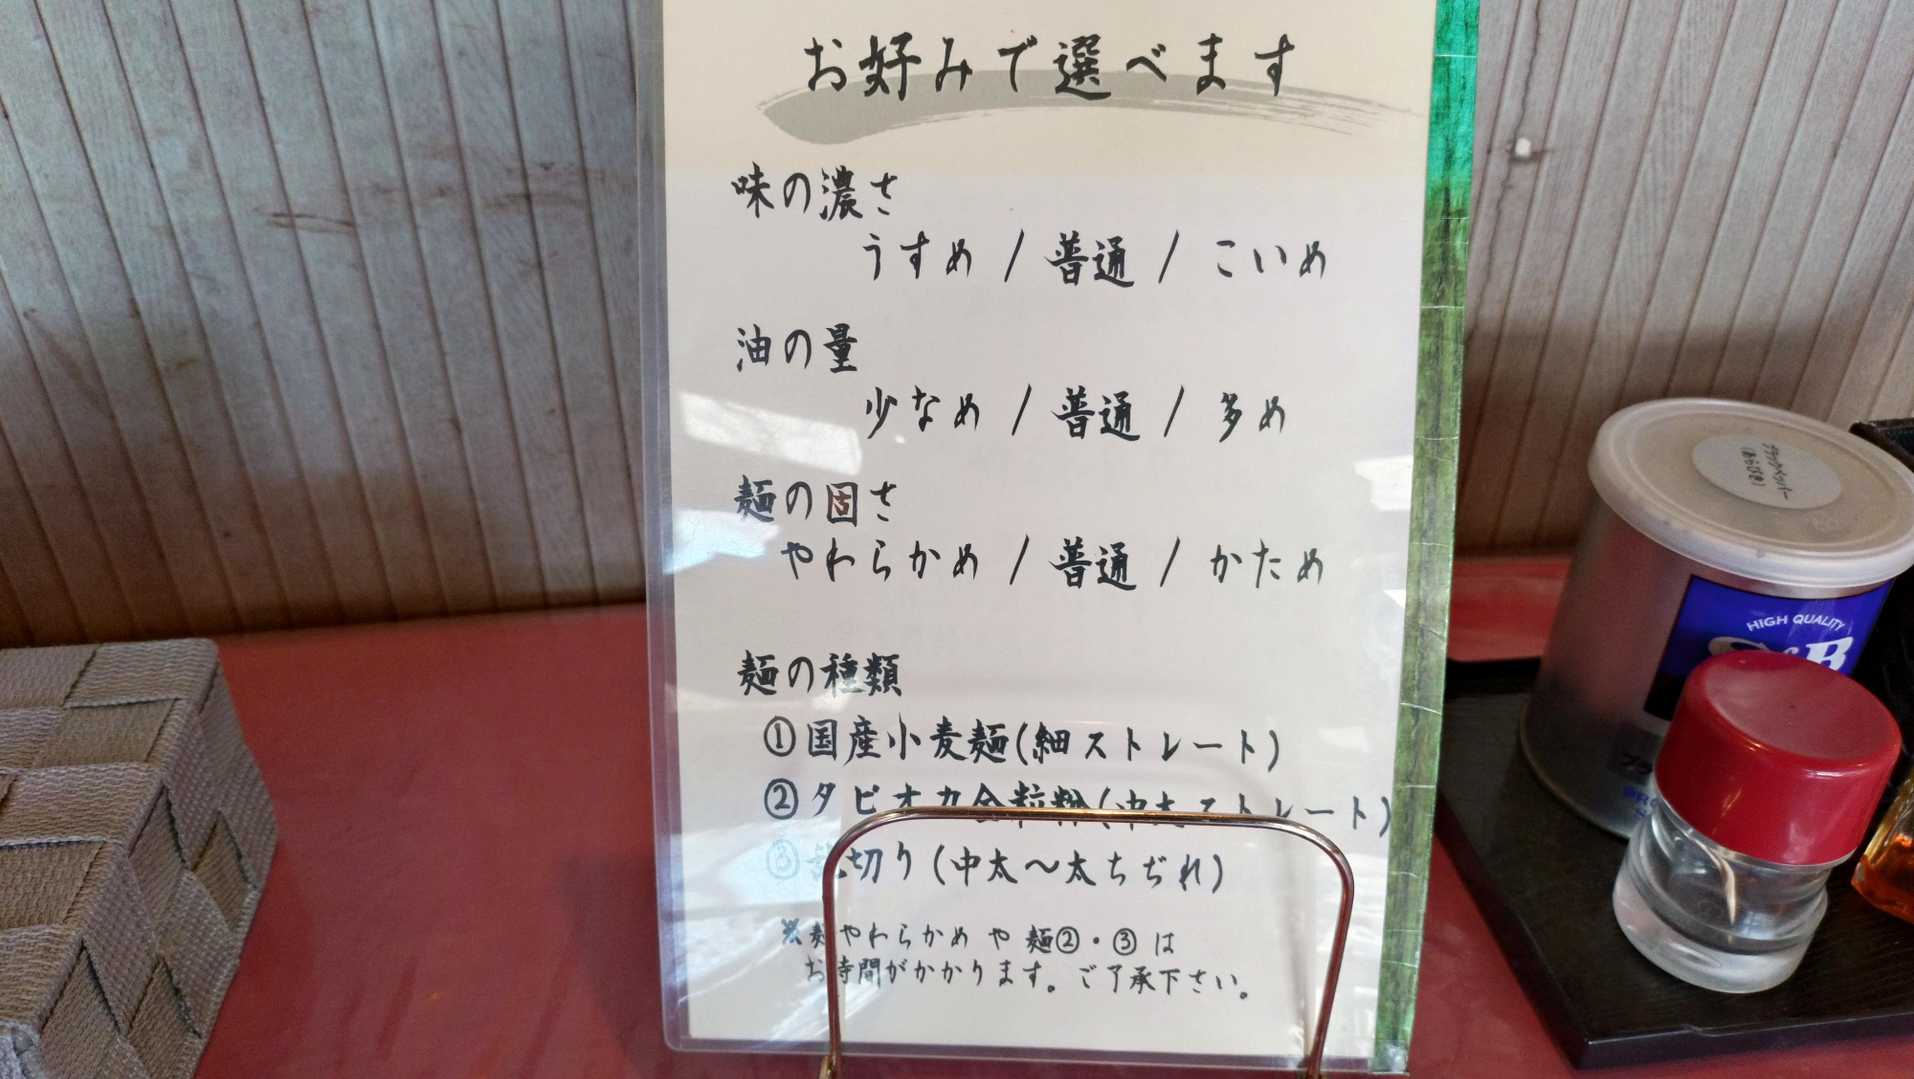 お好みで選べます
味の濃さ
うすめ / 普通 / こいめ
油の量
少なめ / 普通 /多め
麺の固さ
やわらかめ / 普通 / かため
麺の種類
①国産小麦麺(細ストレート)
②タピオカ全粒粉(中太ストレート)
③ 切り(中太～太ちぢれ)
※麺やわらかめ や 麺②・③ は
お時間がかかります。ご了承下さい。
ブラックペッパー
(あらびき)
HIGH QUALITY
S&B